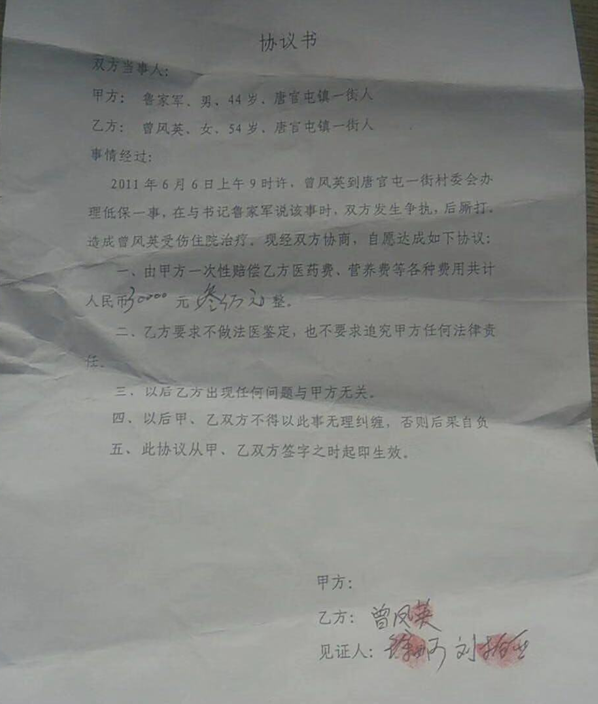 协议书
双方当事人：
甲方： 鲁家军、男、44岁、唐官屯镇一街人
乙方： 曾凤英、女、54岁、唐官屯镇一街人
事情经过：
2011年6月6日上午9时许，曾凤英到唐官屯一街村委会办
理低保一事，在与书记鲁家军说该事时，双方发生争执，后厮打。
造成曾凤英受伤住院治疗，现经双方协商，自愿达成如下协议：
一、由甲方一次性赔偿乙方医药费、营养费等各种费用共计
人民币30000 元 叁万元整。
二、乙方要求不做法医鉴定，也不要求追究甲方任何法律责
任。
三、以后乙方出现任何问题与甲方无关。
四、以后甲、乙双方不得以此事无理纠缠，否则后果自负
五、此协议从甲、乙双方签字之时起即生效。
甲方：
乙方：曾凤英
见证人：